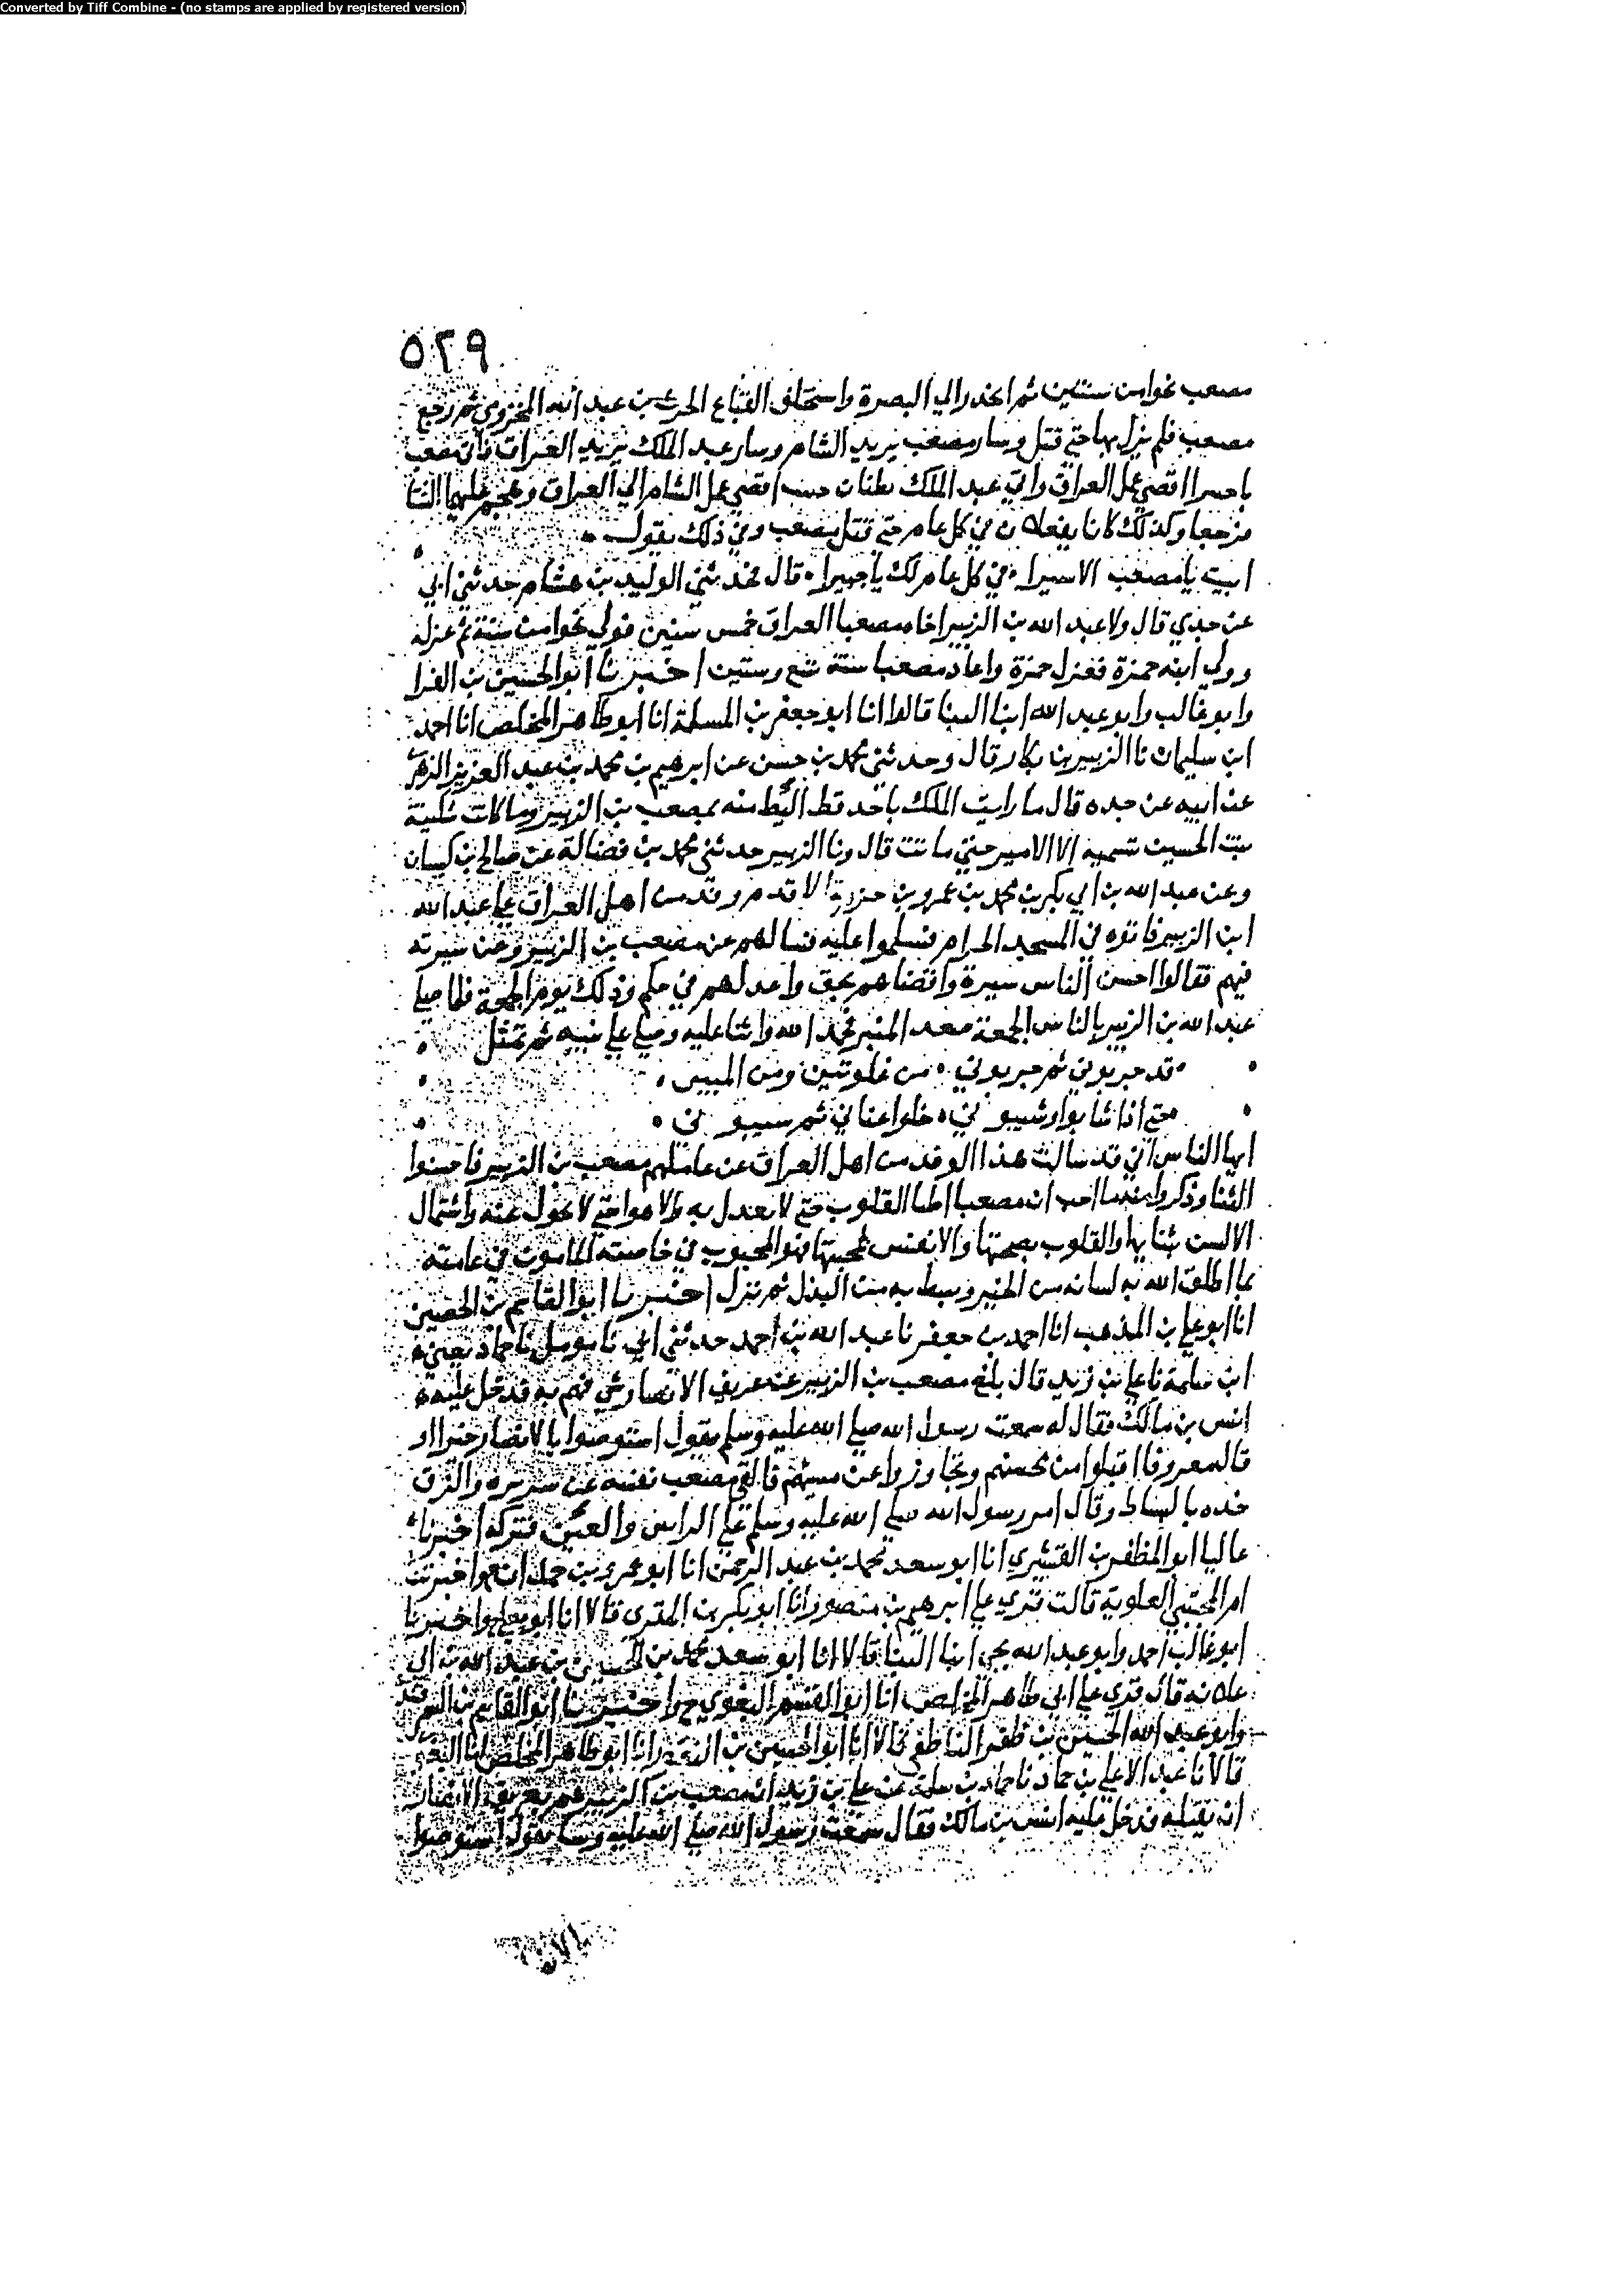 Converted by Tiff Combine - (no stamps are applied by registered version)
٥٢٩
مصعب نحوا من سنتين ثم انحدر الي البصرة واستخلف القباع الحرث بن عبد الله المخزومي ثم رجع
مصعب فلم يزل بها حتي قتل وسار مصعب يريد الشام وسار عبد الملك يريد العراق فاتي مصعب
باجميرا اقصي عمل العراق واتي عبد الملك بطنان حبيب اقصي عمل الشام الي العراق وهجم عليهما الشتا
فرجعا وكذلك كانا يفعلان في كل عام حتي قتل مصعب وفي ذلك يقول
ابيت يا مصعب الا سيرا في كل عام لك باجميرا قال فحدثني الوليد بن هشام حدثني ابي
عن جدي قال ولا عبد الله بن الزبير اخاه مصعبا العراق خمس سنين فولي نحوا من سنة ثم عزله
وولي ابنه حمزة فعزل حمزة واعاد مصعبا سنة تسع وستين اخبرنا ابو الحسين بن الفرا
وابو غالب وابو عبد الله ابنا البنا قالوا انا ابو جعفر بن المسلمة انا ابو طاهر المخلص انا احمد
ابن سليمان نا الزبير بن بكار قال وحدثني محمد بن حسن عن ابرهيم بن محمد بن عبد العزيز الزهري
عن ابيه عن جده قال ما رايت الملك باحد قط اليط منه بمصعب بن الزبير وما كانت سكينة
بنت الحسين تسميه الا الامير حتي ماتت قال ونا الزبير حدثني محمد بن فضالة عن صالح بن كيسان
وعن عبد الله بن ابي بكر بن محمد بن عمرو بن حزم قالا قدم وفد من اهل العراق علي عبد الله
ابن الزبير فاتوه في المسجد الحرام فسلموا عليه فسالهم عن مصعب بن الزبير وعن سيرته
فيهم فقالوا احسن الناس سيرة واقضاهم بحق واعدلهم في حكم وذلك يوم الجمعة فلما صلي
عبد الله بن الزبير بالناس الجمعة صعد المنبر فحمد الله واثنا عليه وصلي علي نبيه ثم تمثل
قد جربوني ثم جربوني من غلوتين ومن المبين
حتي اذا شابوا وشيبوني خلوا عناني ثم سيبوني
ايها الناس اني قد سالت هذا الوفد من اهل العراق عن عاملهم مصعب بن الزبير فاحسنوا
الثنا وذكروا منه ما احب ان مصعبا اطبا القلوب حتي لا تعدل به والاهوا حتي لا تحول عنه واستمال
الالسن بثنايها والقلوب بصحتها والانفس بمحبتها فهو المحبوب في خاصته المامون في عامته
بما اطلق الله به لسانه من الخير وبسط به من البذل ثم نزل اخبرنا ابو القاسم بن الحصين
انا ابو علي بن المذهب انا احمد بن جعفر نا عبد الله بن احمد حدثني ابي نا مومل نا حماد يعني
ابن سلمة نا علي بن زيد قال بلغ مصعب بن الزبير عن عريف الانصار شي فهم به فدخل عليه
انس بن مالك فقال له سمعت رسول الله صلي الله عليه وسلم يقول استوصوا بالانصار خيرا او
قال معروفا اقبلوا من محسنهم وتجاوزوا عن مسيئهم فالقي مصعب نفسه عن سريره والزق
خده بالبساط وقال امر رسول الله صلي الله عليه وسلم علي الراس والعين فتركه اخبرناه
عاليا ابو المظفر بن القشيري انا ابو سعد محمد بن عبد الرحمن انا ابو عمرو بن حمدان ح واخبرتنا
ام المجتبي العلوية قالت قري علي ابرهيم بن منصور انا ابو بكر بن المقري قالا انا ابو يعلي ح واخبرنا
ابو غالب احمد وابو عبد الله يحي ابنا البنا قالا انا ابو سعد محمد بن الحسين بن عبد الله بن ابي
علانه قال قري علي ابي طاهر المخلص انا ابو القسم البغوي ح واخبرنا ابو القاسم بن السمرقندي
وابو عبد الله الحسين بن ظفر الناطفي قالا انا ابو الحسين بن النقور انا ابو طاهر المخلص
قالا نا عبد الاعلي بن حماد نا حماد بن سلمة عن علي بن زيد ان مصعب بن الزبير هم بعريف الانصار
ان يقتله فدخل عليه انس بن مالك فقال سمعت رسول الله صلي الله عليه وسلم يقول استوصوا